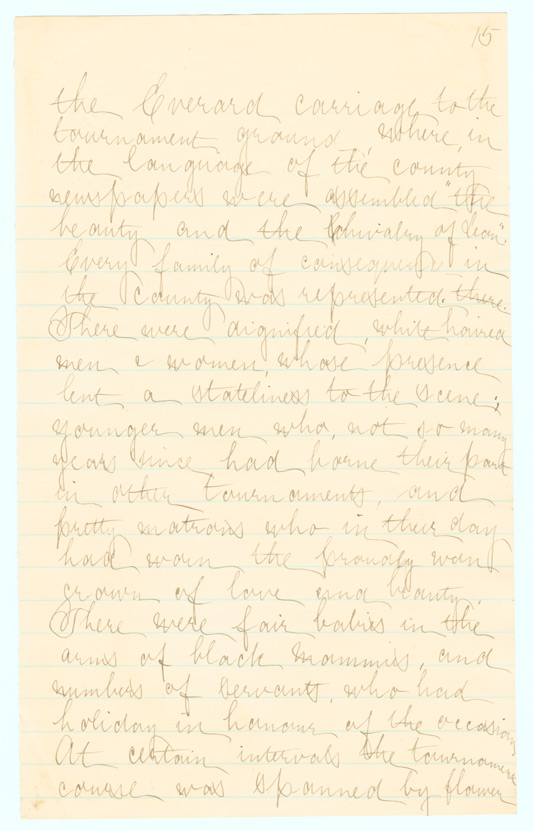 15
the Everard carriage to the
tournament ground where, in
the language of the county
newspapers were assembled "the
beauty and the Chivalry of Leon".
Every family of consequence in
the county was represented there.
There were dignified, white haired
men & women, whose presence
lent a stateliness to the scene;
younger men who, not so many
years since had borne their part
in other tournaments, and
pretty matrons who in their day
had worn the proudly won
crown of love and beauty.
There were fair babies in the
arms of black mammies, and
numbers of servants, who had
holiday in honour of the occasion
At certain intervals the tournament
course was spanned by flower